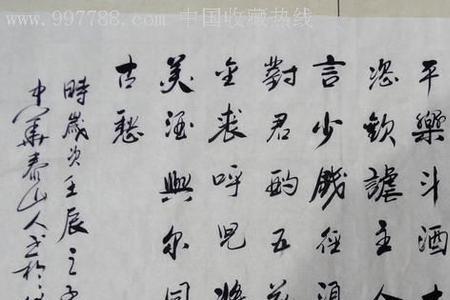 www.997788.com 中国收藏热线
平樂斗酒十
恣歡謔主人
言少錢徑須
對君酌五花
金裘呼兒將
美酒與爾同
古愁
時歲次壬辰之
中華泰山人書於